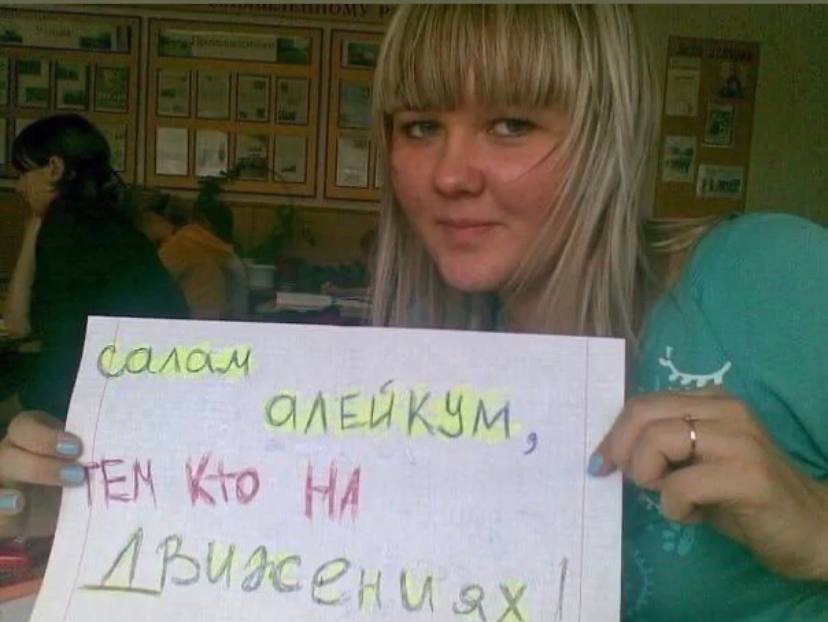 Промышленный
салам
АЛЕЙКУМ,
ТЕМ КТО НА
ДВИЖЕНИЯХ!